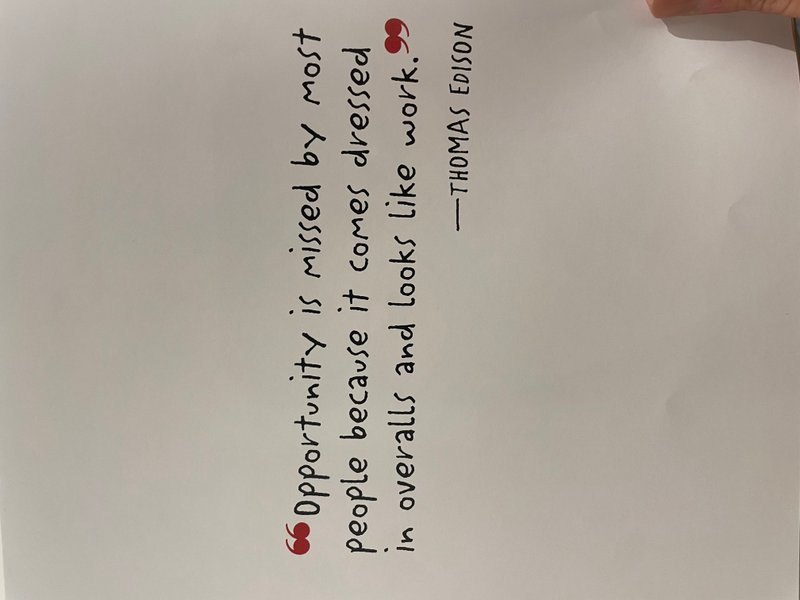 “Opportunity is missed by most
people because it comes dressed
in overalls and looks like work.”
—THOMAS EDISON